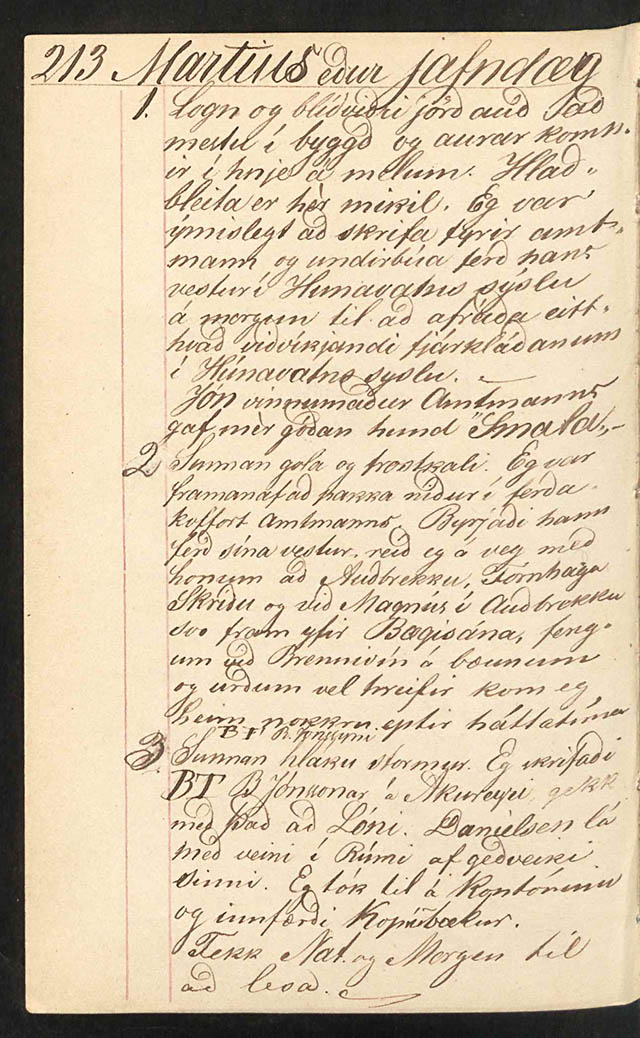 213 Martius eður jafndæg
1. Logn og blíðviðri jörð auð að
mestu í byggð og aurar komn-
ir í hnje á melum. Hlað-
bleita er hér mikil. Eg var
ýmislegt að skrifa fyrir amt-
mann og undirbúa ferð hans
vestur í Húnavatns sýslu
á morgun til að afráða eitt-
hvað viðvíkjandi fjárkláðanum
í Húnavatns syslu.
Jón vinnumaður Amtmanns
gaf mér góðan hund "Smala"
2. Sunnan gola og frostkali. Eg var
framanaf að pakka niður í ferða-
koffort amtmanns. Byrjaði hann
ferð sína vestur, reið eg á veg með
honum að Auðbrekku, Fornhaga
Skriðu og við Magnús í Auðbrekku
svo fram yfir Bægisána, feng-
um við Brennivín á bæunum
og urðum vel hreifir kom eg
heim nokkru eptir háttatíma
BT B. Jónssyni
3. Sunnan hláku stormur. Eg skrifaði
BT B Jónsonar á Akureyri gekk
með það að Lóni. Danielsen lá
með veini í Rúmi af geðveiki
sinni. Eg tók til á Kontórinu
og innfærði Kopíubækur.
Fekk Nat. og Morgen til
að lesa.